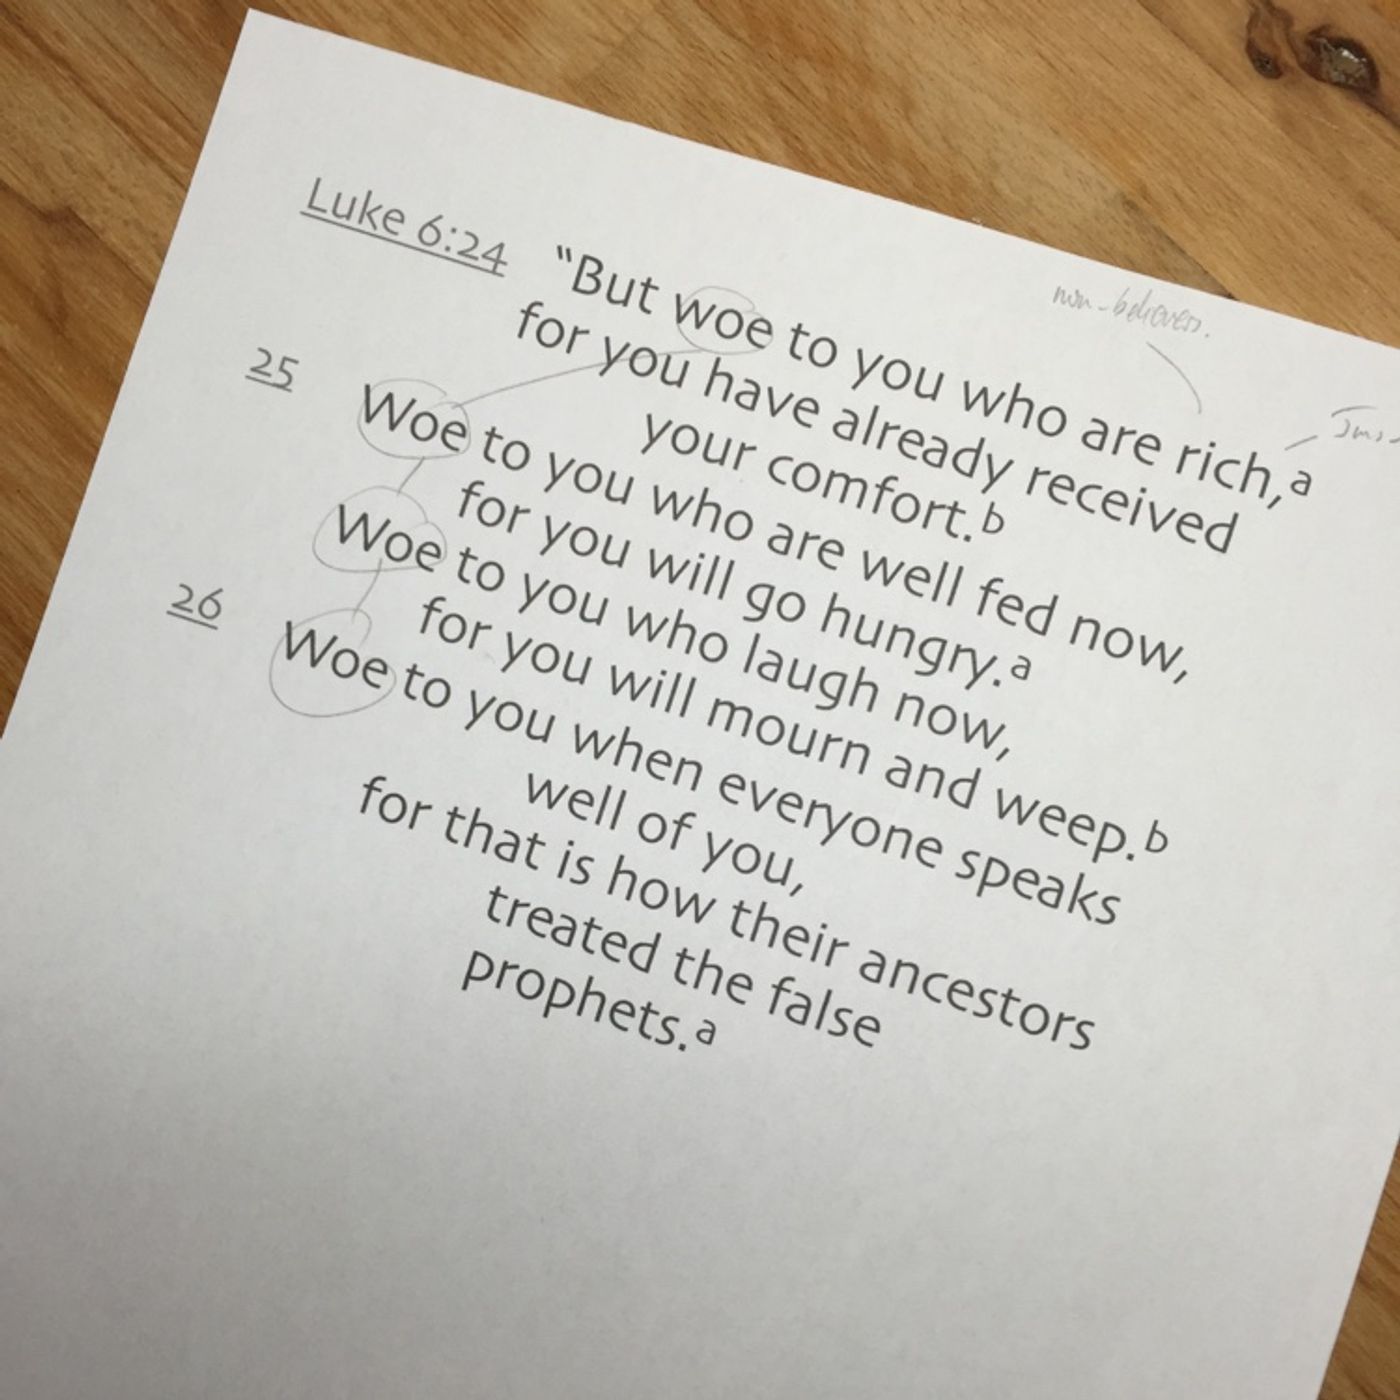 non-believers.
Luke 6:24 "But woe to you who are rich,a
for you have already received
your comfort.b
25 Woe to you who are well fed now,
for you will go hungry.a
Woe to you who laugh now,
for you will mourn and weep.b
26 Woe to you when everyone speaks
well of you,
for that is how their ancestors
treated the false
prophets.a